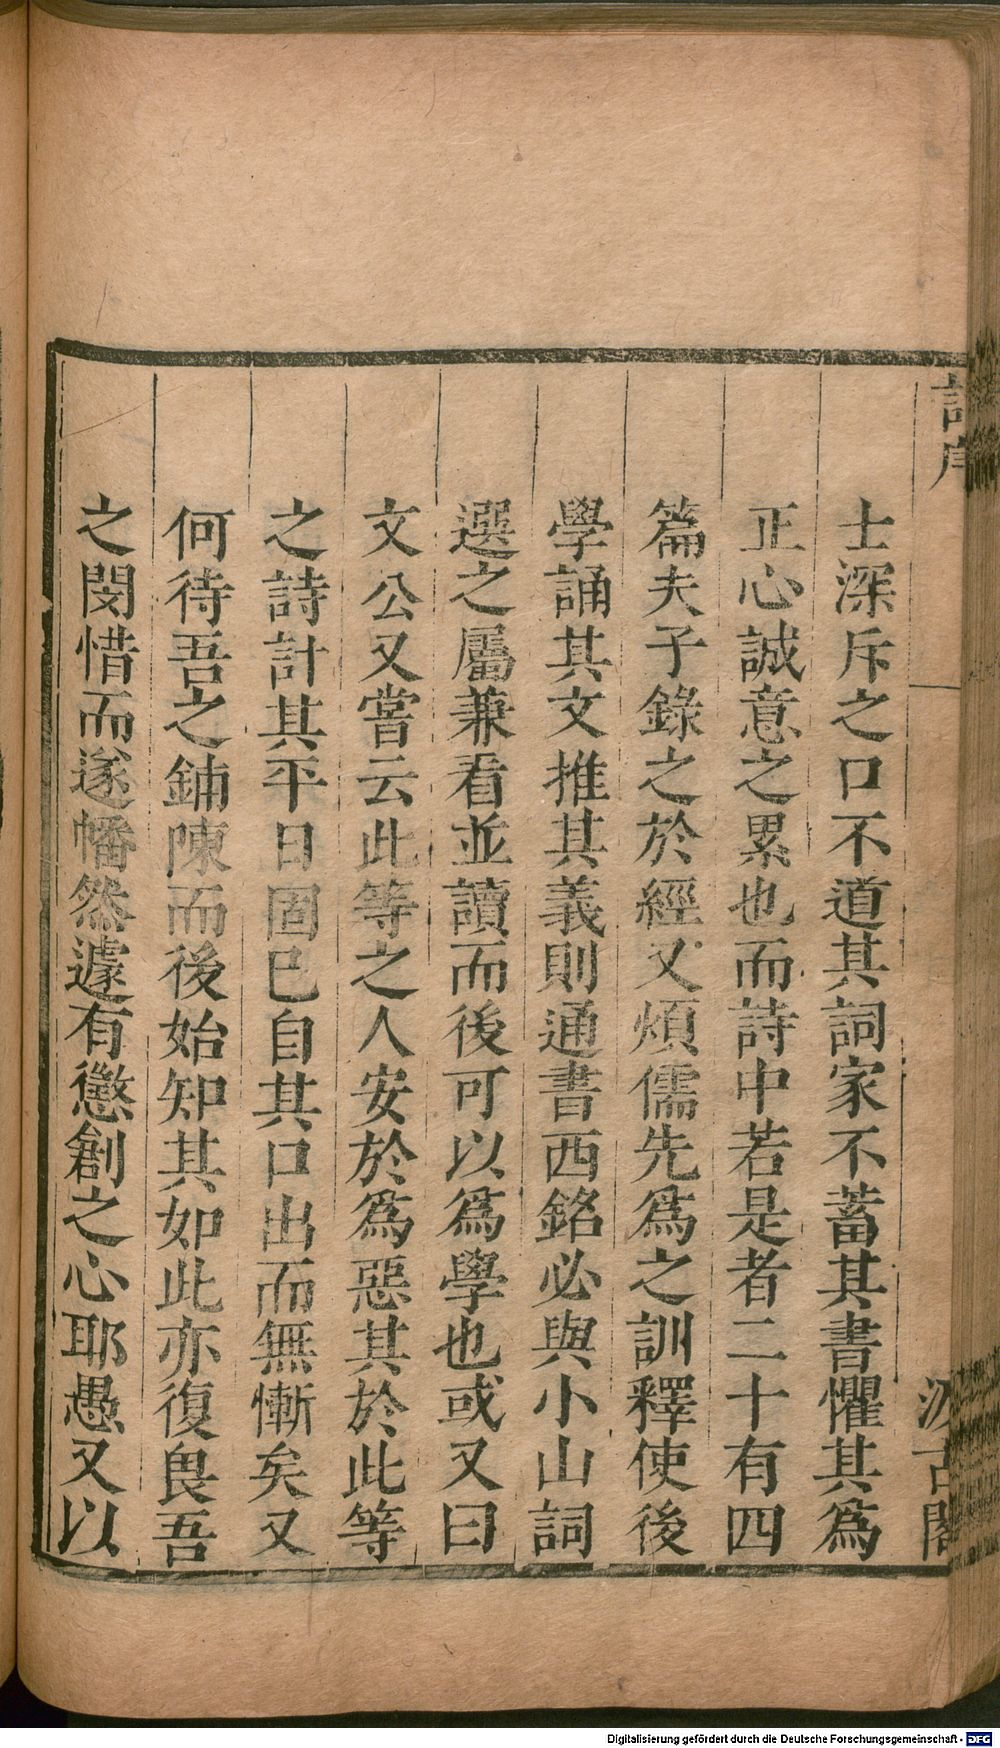 士深斥之口不道其詞家不蓄其書懼其為
正心誠意之累也而詩中若是者二十有四
篇夫子錄之於經又煩儒先為之訓釋使後
學誦其文推其義則通書西銘必與小山詞
選之屬兼看並讀而後可以為學也或又曰
文公又嘗云此等之人安於為惡其於此等
之詩計其平日固已自其口出而無慚矣又
何待吾之鋪陳而後始知其如此亦復畏吾
之閔惜而遂幡然遽有懲創之心耶愚又以
汲古閣
Digitalisierung gefördert durch die Deutsche Forschungsgemeinschaft - DFG